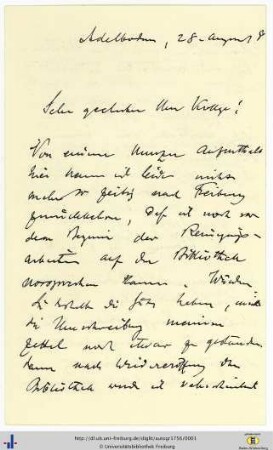 Adelboden, 28. August
Sehr geehrter Herr
Von einem kurzen Aufenthalt
hier kann ich leider nicht
mehr so zeitig nach Freiburg
zurückkehren, daß ich noch vor
dem Beginn der Reinigungs-
arbeiten auf der Bibliothek
vorsprechen kann. Würden
Sie die Güte haben, mir
die Umschreibung meiner
Zettel noch etwas zu
denn nach Wiedereröffnung der
Bibliothek werde ich
http://dl.ub.uni-freiburg.de/diglit/autogr1755/0001
© Universitätsbibliothek Freiburg